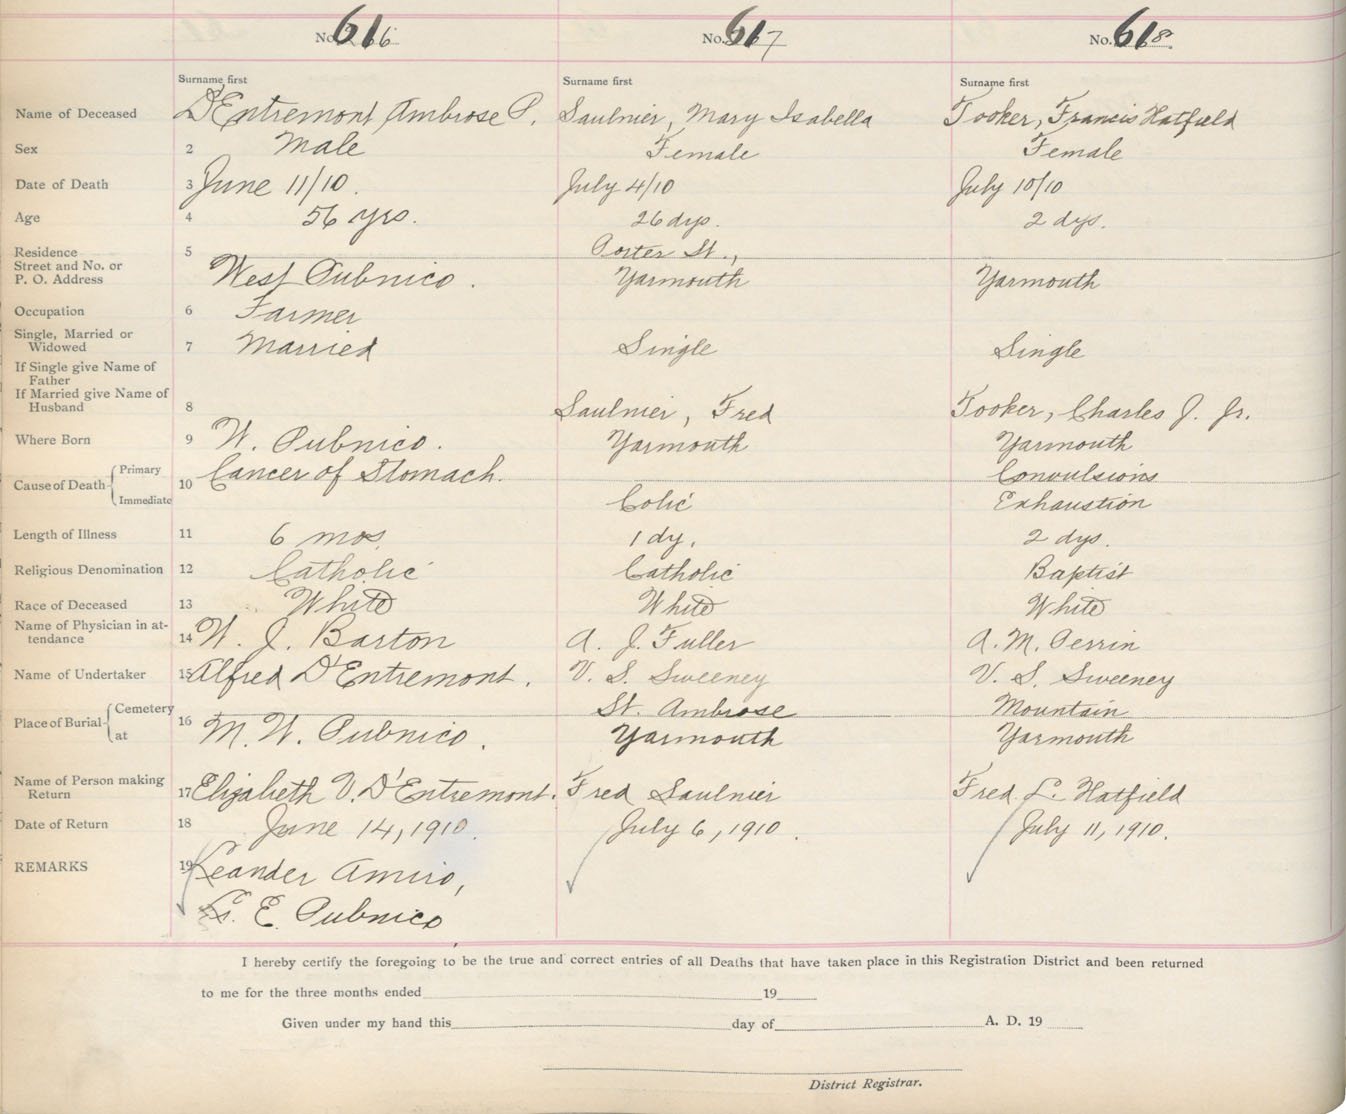 No. 616 No. 617 No. 618
Surname first Surname first Surname first
Name of Deceased D'Entremont Ambrose P. Saulnier, Mary Isabella Tooker, Francis Hatfield
Sex 2 Male Female Female
Date of Death 3 June 11/10. July 4/10 July 10/10
Age 4 56 yrs. 26 dys. 2 dys.
Residence 5 Porter St.,
Street and No. or
P. O. Address West Pubnico. Yarmouth Yarmouth
Occupation 6 Farmer
Single, Married or
Widowed 7 Married Single Single
If Single give Name of
Father
If Married give Name of
Husband 8 Saulnier, Fred Tooker, Charles J. Jr.
Where Born 9 W. Pubnico. Yarmouth Yarmouth
Cause of Death Primary 10 Cancer of Stomach. Convulsions
Immediate Colic Exhaustion
Length of Illness 11 6 mos. 1 dy. 2 dys.
Religious Denomination 12 Catholic Catholic Baptist
Race of Deceased 13 White White White
Name of Physician in at-
tendance 14 W. J. Barton A. J. Fuller A. M. Perrin
Name of Undertaker 15 Alfred D'Entremont. V. S. Sweeney V. S. Sweeney
Place of Burial Cemetery 16 St. Ambrose Mountain
at M. W. Pubnico. Yarmouth Yarmouth
Name of Person making
Return 17 Elizabeth V. D'Entremont. Fred Saulnier Fred L. Hatfield
Date of Return 18 June 14, 1910. July 6, 1910. July 11, 1910.
REMARKS 19 Leander Amiro,
E. Pubnico
I hereby certify the foregoing to be the true and correct entries of all Deaths that have taken place in this Registration District and been returned
to me for the three months ended 19
Given under my hand this day of A. D. 19
District Registrar.